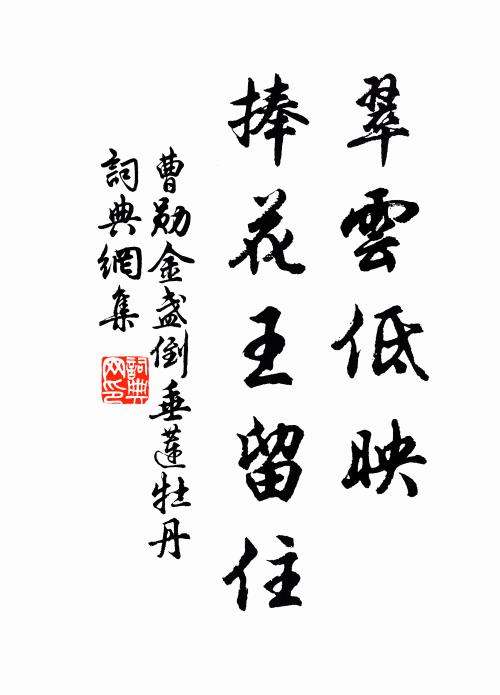 翠雲低映
捧花王留住
曹勋金盏倒垂蓮牡丹
詞典網集
詞典網印